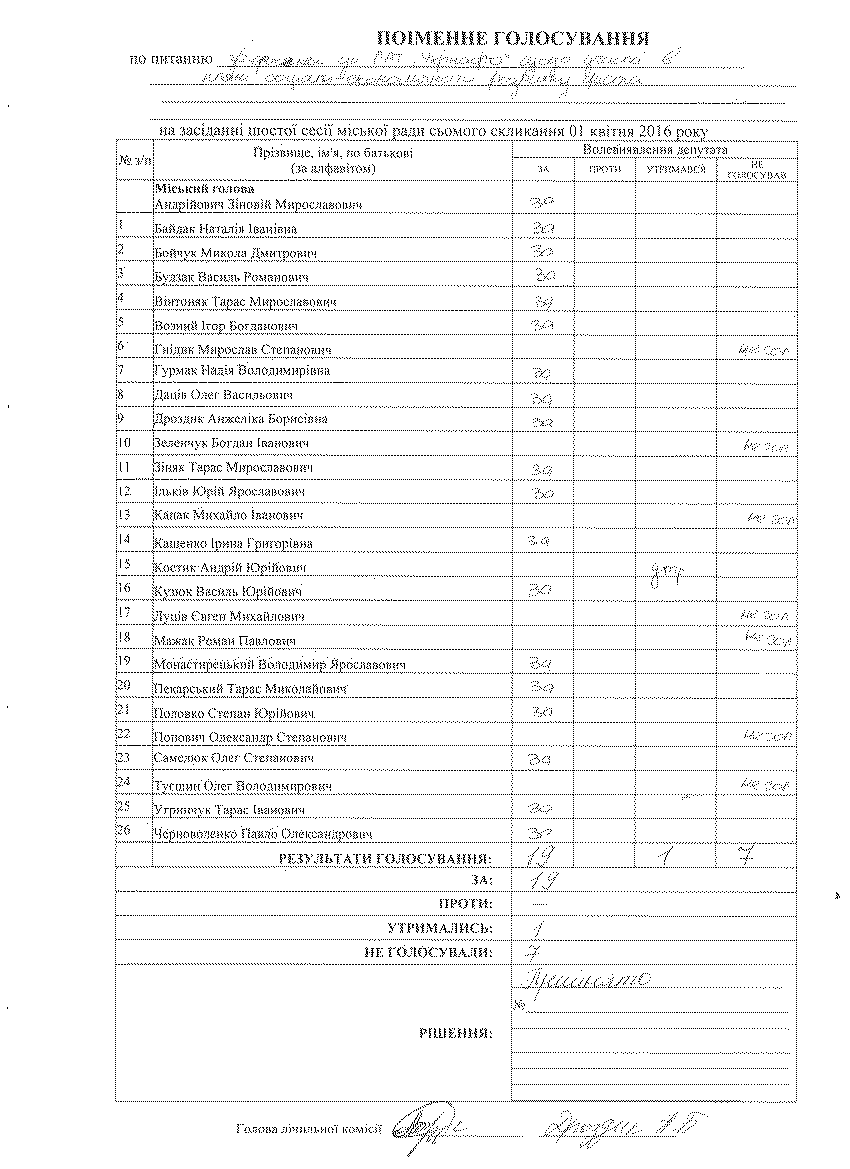 ПОІМЕННЕ ГОЛОСУВАННЯ
по питанню
на засіданні шостої сесії міської ради сьомого скликання 01 квітня 2016 року
№ з/п Прізвище, ім'я, по батькові (за алфавітом) Волевиявлення депутата
ЗА ПРОТИ УТРИМАВСЯ НЕ ГОЛОСУВАВ
Міський голова
Андрійович Зіновій Мирославович за
1 Байдак Наталія Іванівна за
2 Бойчук Микола Дмитрович за
3 Будзак Василь Романович за
4 Вінтоняк Тарас Мирославович за
5 Возний Ігор Богданович за
6 Гнідик Мирослав Степанович не гол
7 Гурмак Надія Володимирівна за
8 Даців Олег Васильович за
9 Дроздик Анжеліка Борисівна за
10 Зеленчук Богдан Іванович не гол
11 Зіняк Тарас Мирославович за
12 Ільків Юрій Ярославович за
13 Капак Михайло Іванович не гол
14 Кащенко Ірина Григорівна за
15 Костик Андрій Юрійович утр
16 Кузюк Василь Юрійович за
17 Луців Євген Михайлович не гол
18 Мажак Роман Павлович не гол
19 Монастирецький Володимир Ярославович за
20 Пекарський Тарас Миколайович за
21 Половко Степан Юрійович за
22 Попович Олександр Степанович не гол
23 Самелюк Олег Степанович за
24 Тугшин Олег Володимирович не гол
25 Угринчук Тарас Іванович за
26 Черноволенко Павло Олександрович за
РЕЗУЛЬТАТИ ГОЛОСУВАННЯ: 19 1 7
ЗА: 19
ПРОТИ: —
УТРИМАЛИСЬ: 1
НЕ ГОЛОСУВАЛИ: 7
Прийнято
№
РІШЕННЯ:
Голова лічильної комісії